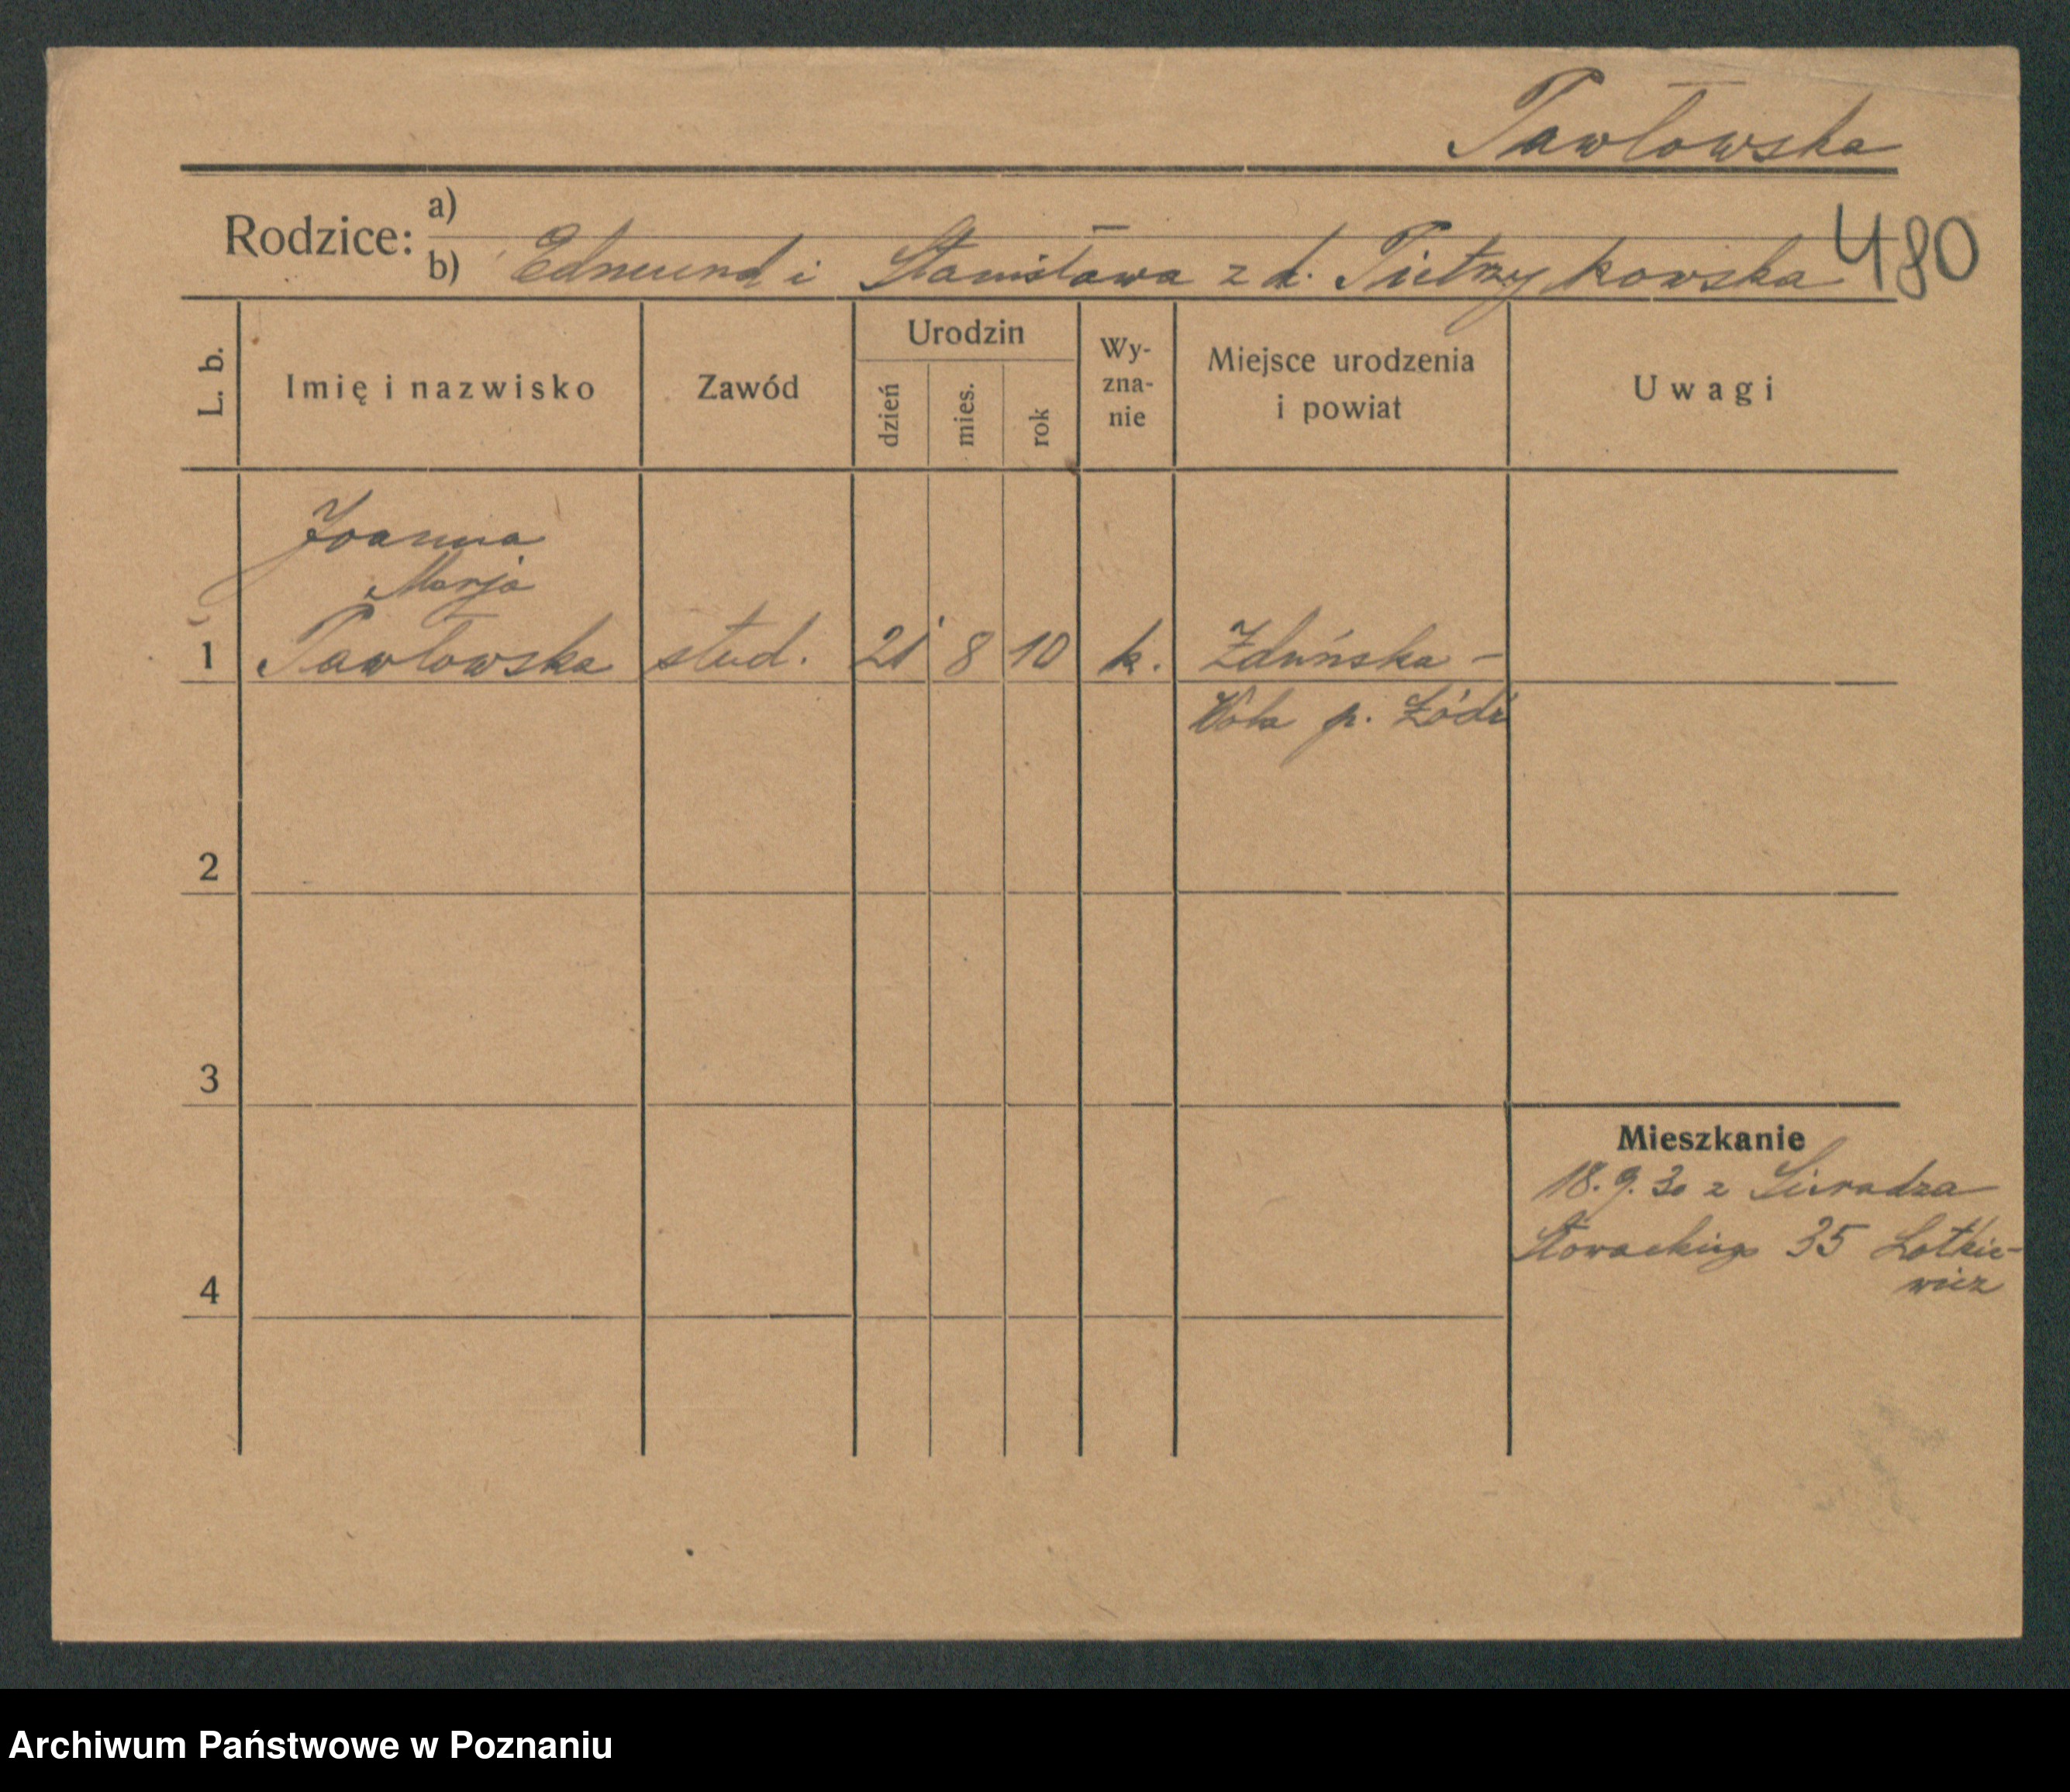 Pawłowska
Rodzice:
a)
b) Edmund i Stanisława z d. Pietrzykowska
480
L. b.
Imię i nazwisko
Zawód
Urodzin
dzień
mies.
rok
Wy-
zna-
nie
Miejsce urodzenia
i powiat
Uwagi
Joanna
Marja
1 Pawłowska stud. 21 8 10 k. Zduńska -
Wola p. Łódź
2
3
4
Mieszkanie
18. 9. 30 z Sieradza
Słowackiego 35 Lotkie-
wicz
Archiwum Państwowe w Poznaniu